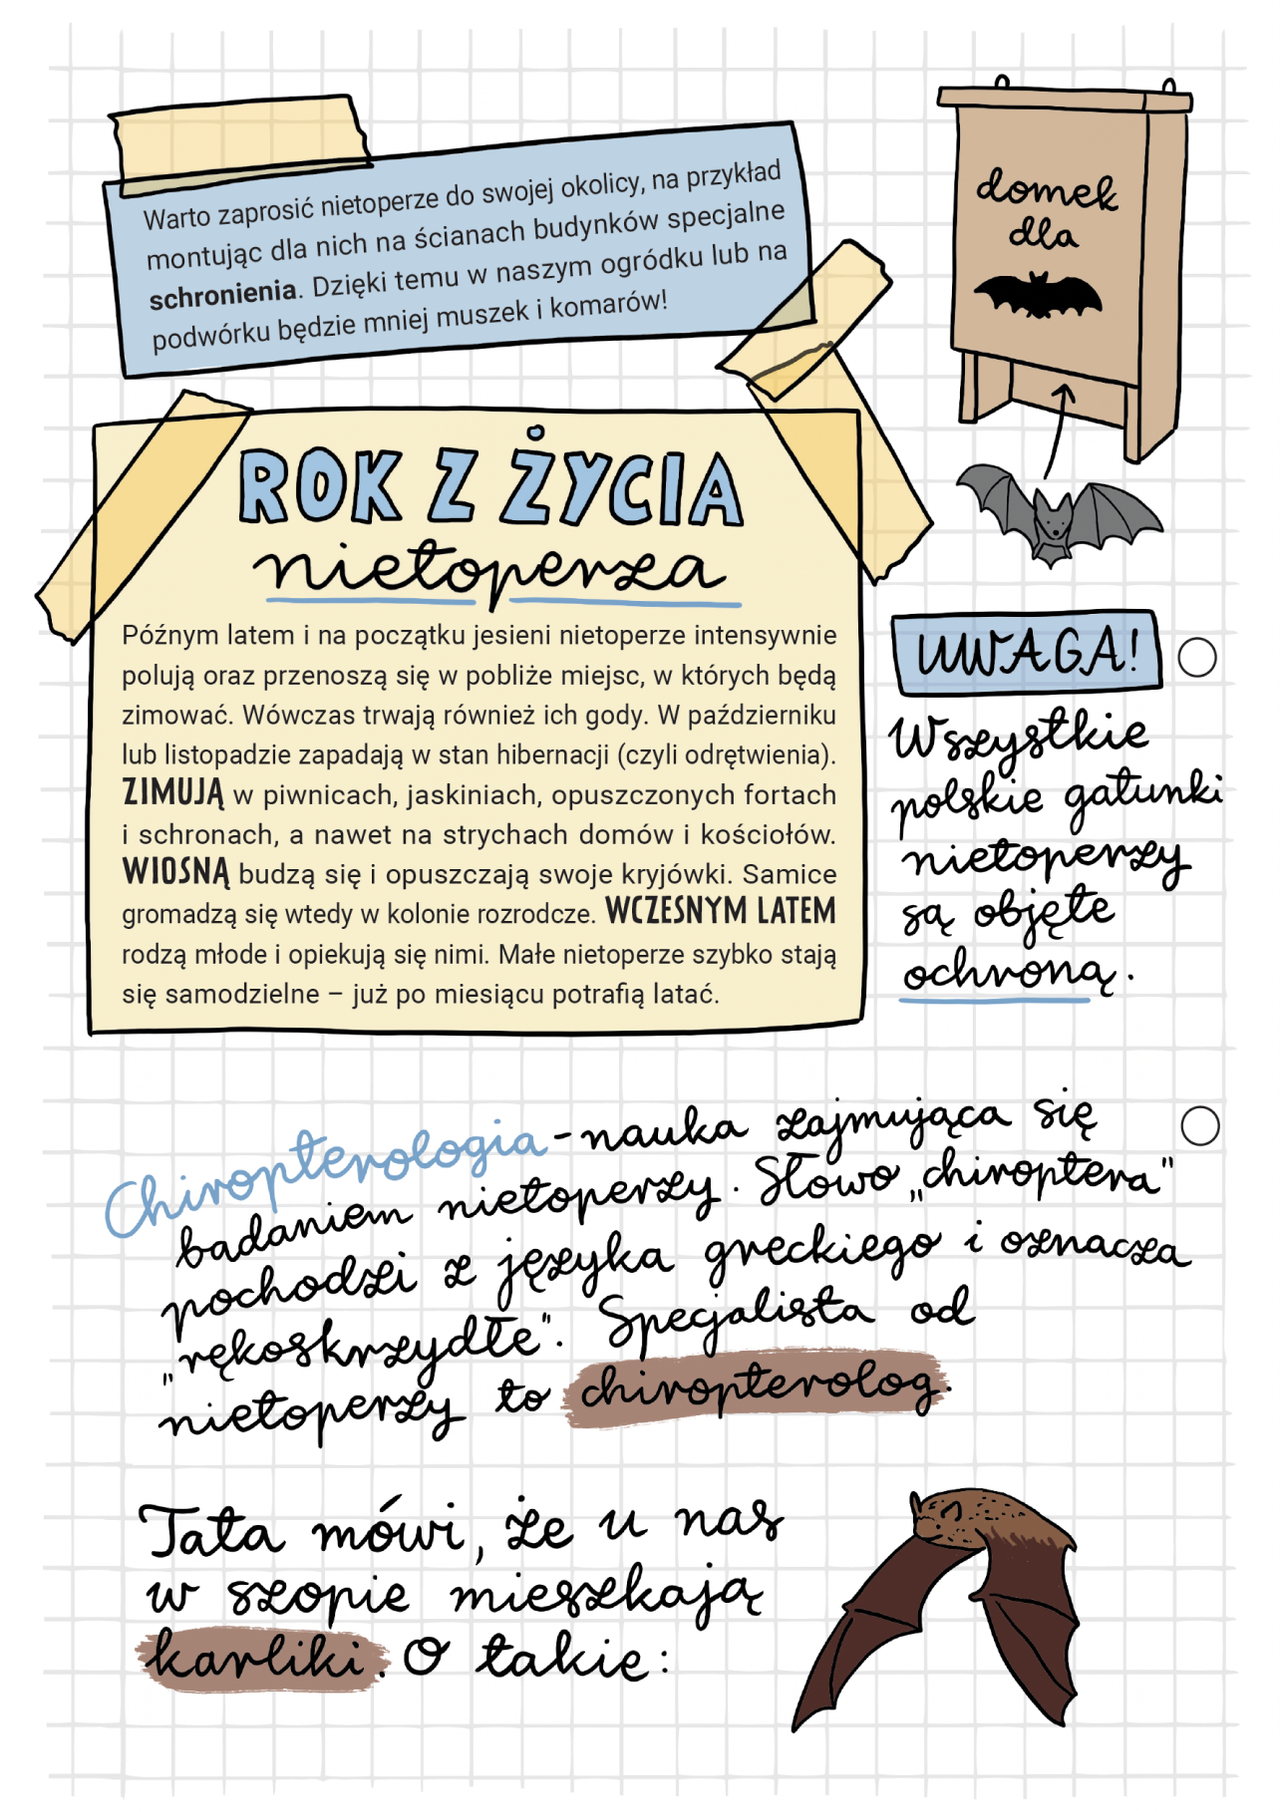 Warto zaprosić nietoperze do swojej okolicy, na przykład
montując dla nich na ścianach budynków specjalne
schronienia. Dzięki temu w naszym ogródku lub na
podwórku będzie mniej muszek i komarów!
domek
dla
ROK Z ŻYCIA
nietoperza
Późnym latem i na początku jesieni nietoperze intensywnie
polują oraz przenoszą się w pobliże miejsc, w których będą
zimować. Wówczas trwają również ich gody. W październiku
lub listopadzie zapadają w stan hibernacji (czyli odrętwienia).
ZIMUJĄ w piwnicach, jaskiniach, opuszczonych fortach
i schronach, a nawet na strychach domów i kościołów.
WIOSNĄ budzą się i opuszczają swoje kryjówki. Samice
gromadzą się wtedy w kolonie rozrodcze. WCZESNYM LATEM
rodzą młode i opiekują się nimi. Małe nietoperze szybko stają
się samodzielne – już po miesiącu potrafią latać.
UWAGA!
Wszystkie
polskie gatunki
nietoperzy
są objęte
ochroną.
Chiropterologia - nauka zajmująca się
badaniem nietoperzy. Słowo „chiroptera"
pochodzi z języka greckiego i oznacza
„rękoskrzydłe". Specjalista od
nietoperzy to chiropterolog.
Tata mówi, że u nas
w szopie mieszkają
karliki. O takie: